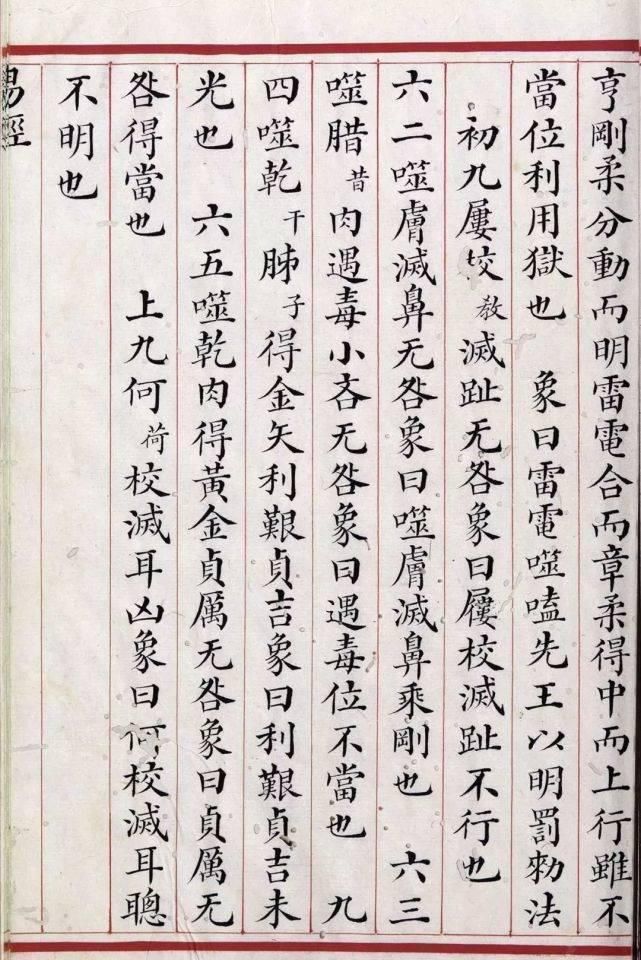 亨剛柔分動而明雷電合而章柔得中而上行雖不
當位利用獄也 象曰雷電噬嗑先王以明罰勑法
初九屨校教滅趾无咎象曰屨校滅趾不行也
六二噬膚滅鼻无咎象曰噬膚滅鼻乘剛也 六三
噬腊昔肉遇毒小吝无咎象曰遇毒位不當也 九
四噬乾干胏子得金矢利艱貞吉象曰利艱貞吉未
光也 六五噬乾肉得黃金貞厲无咎象曰貞厲无
咎得當也 上九何荷校滅耳凶象曰何校滅耳聰
不明也
易經